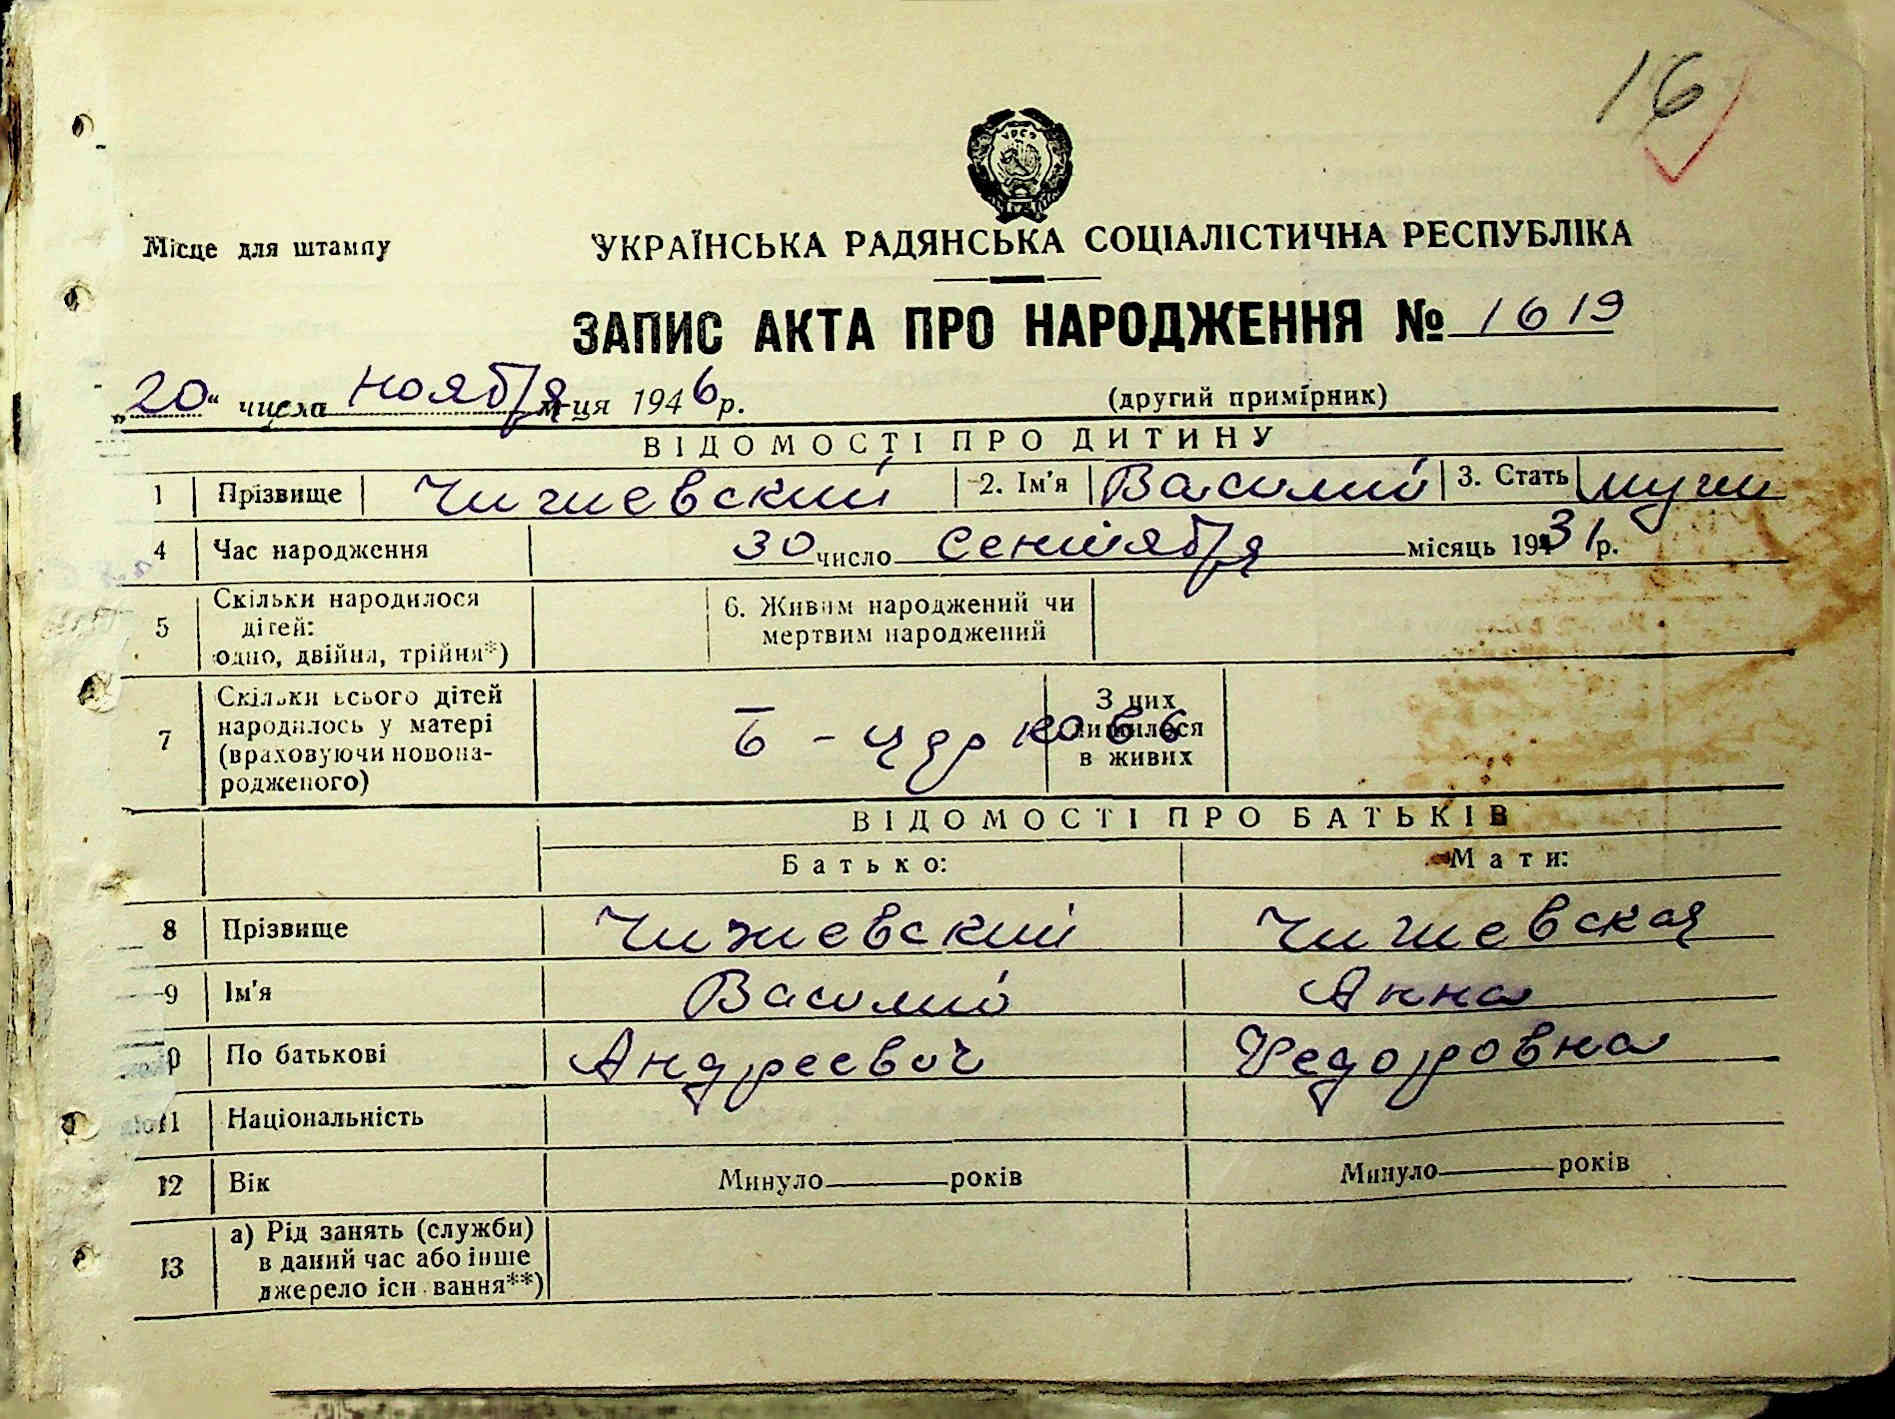 16
УРСР
Місце для штампу
УКРАЇНСЬКА РАДЯНСЬКА СОЦІАЛІСТИЧНА РЕСПУБЛІКА
ЗАПИС АКТА ПРО НАРОДЖЕННЯ № 1619
„20“ числа ноября м-ця 1946 р.
(другий примірник)
ВІДОМОСТІ ПРО ДИТИНУ
1 Прізвище Чижевский 2. Ім'я Василий 3. Стать муж
4 Час народження 30 число сентября місяць 1931 р.
5 Скільки народилося дітей: одно, двійня, трійня*) 6. Живим народжений чи мертвим народжений
7 Скільки всього дітей народилось у матері (враховуючи новонародженого) З них лишилося в живих
ВІДОМОСТІ ПРО БАТЬКІВ
Батько: Мати:
8 Прізвище Чижевский Чижевская
9 Ім'я Василий Анна
10 По батькові Андреевич Федоровна
11 Національність
12 Вік Минуло років Минуло років
13 а) Рід занять (служби) в даний час або інше джерело існування**)